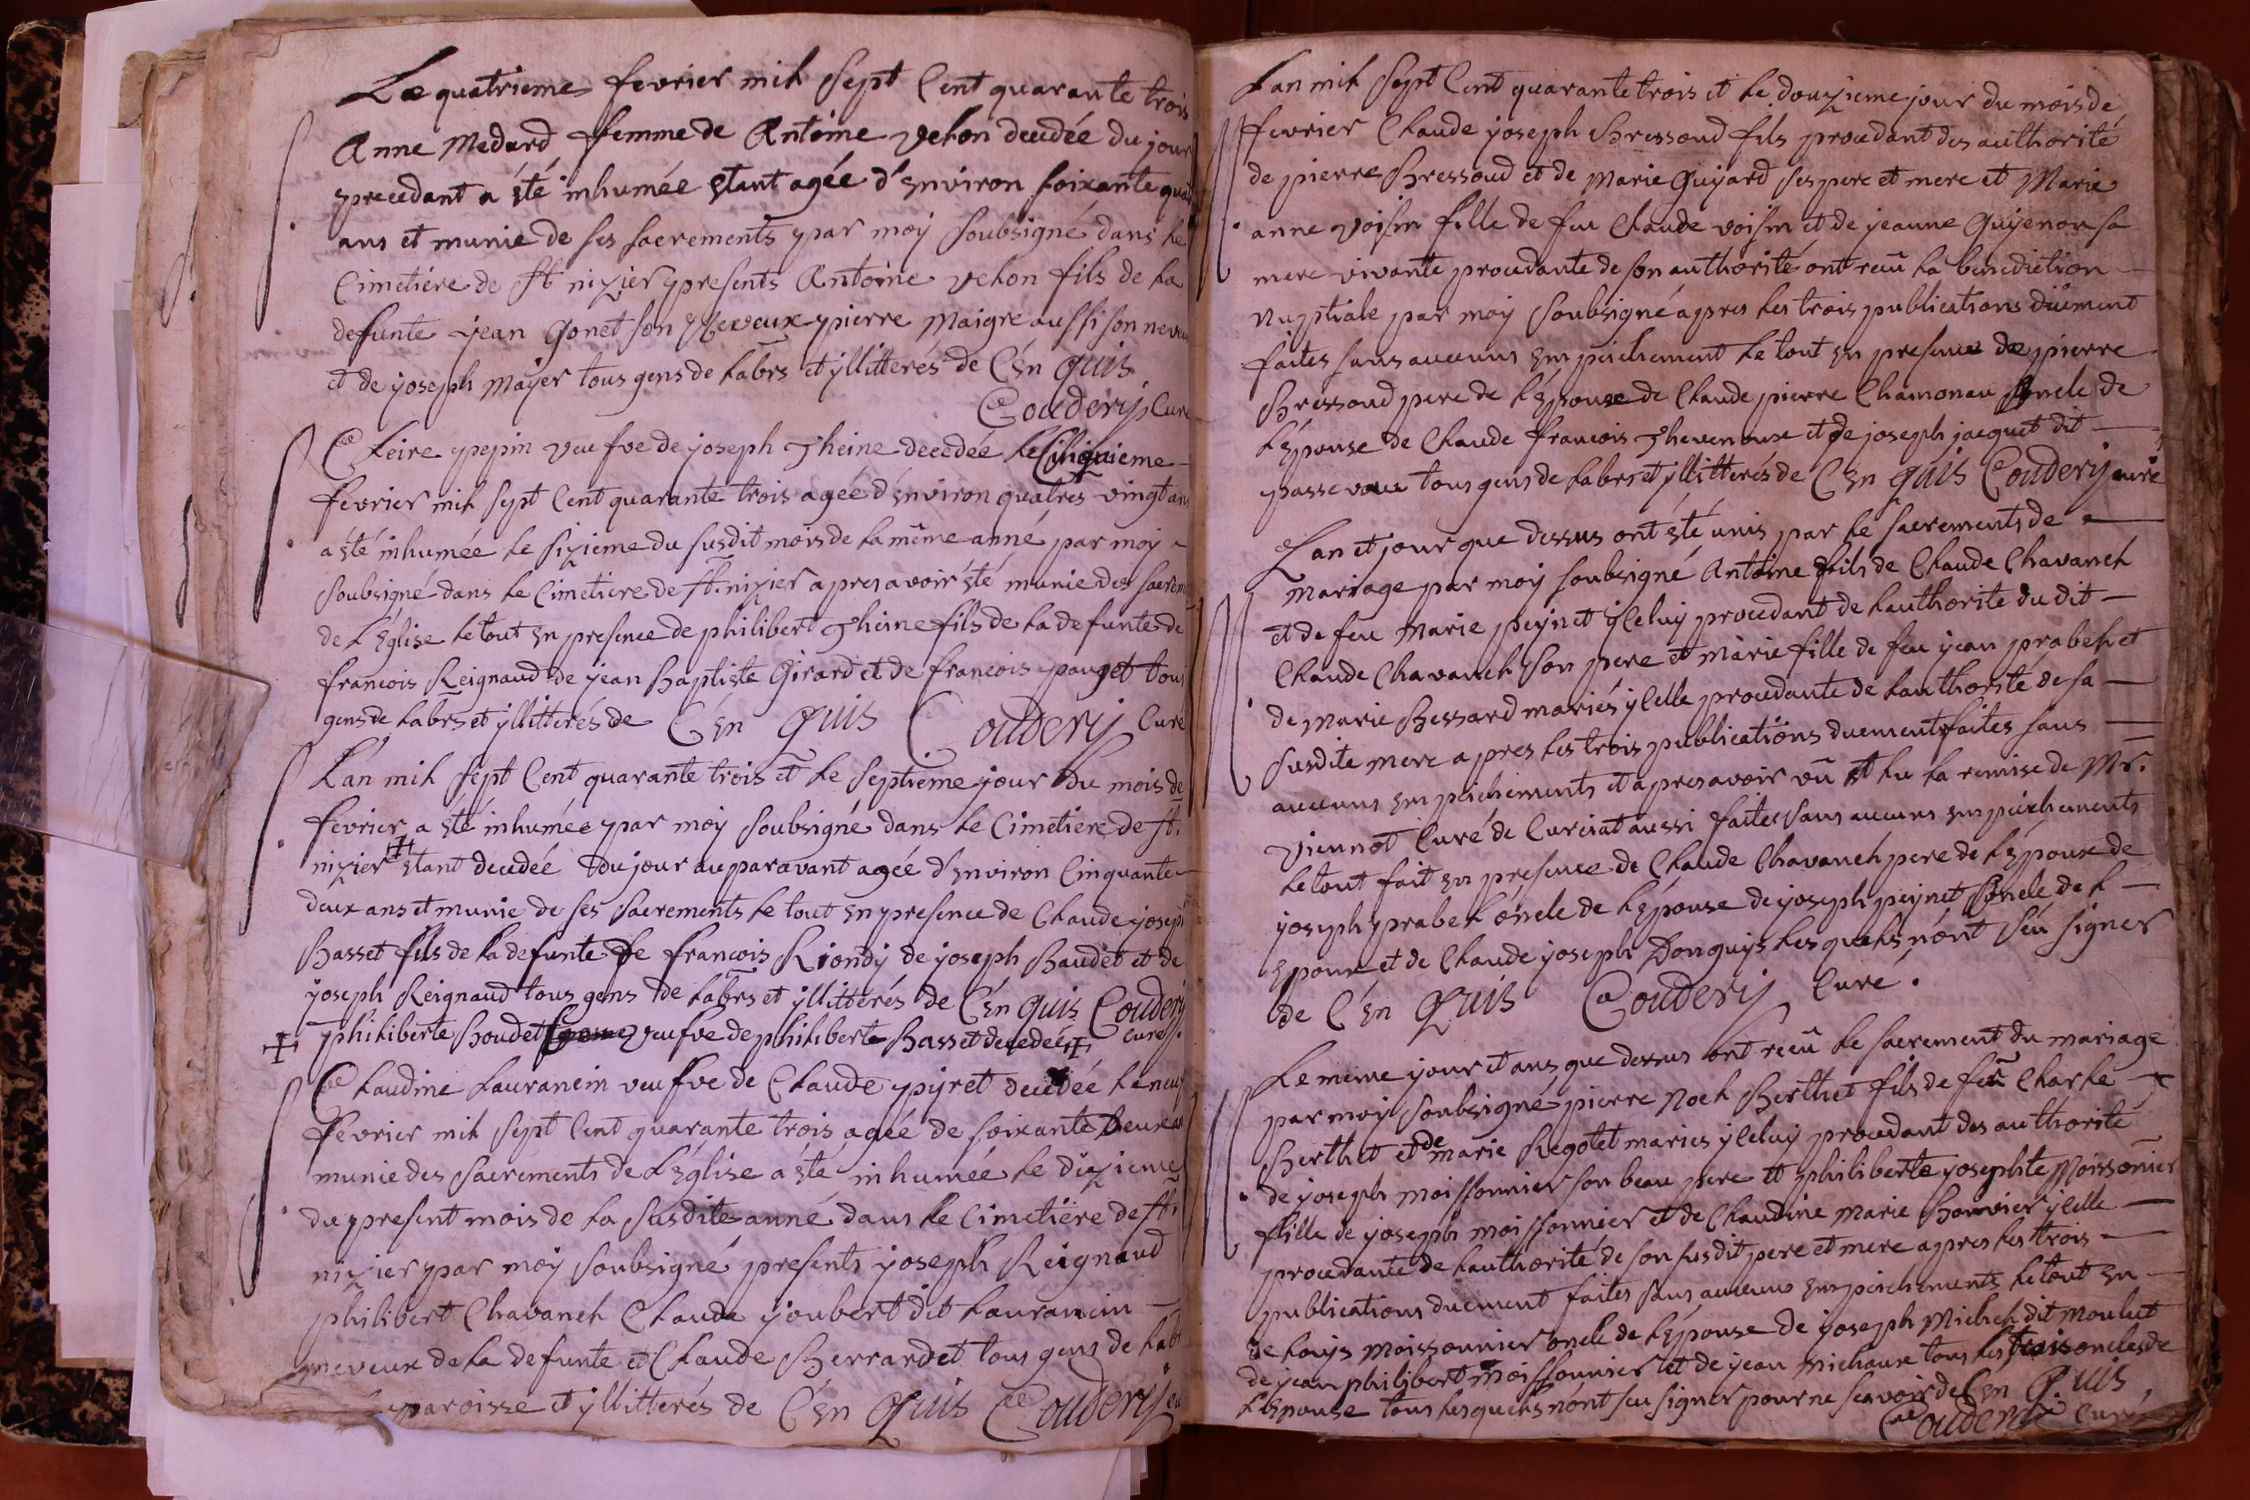 Le quatrieme fevrier mil sept Cent quarante trois
Anne Medard femme de Antoine Velon decedée du jour
precedant a été inhumée étant agée d'environ soixante quat
ans et munie de ses sacrements par moy soubsigné dans le
Cimetiere de st nizier presents Antoine velon fils de la
defunte jean Gonet son neveux pierre Maigre aussi son neveu
et de joseph Mayer tous gens de labrs et yllitterés de C'en quis
Couderij Curé
Cleire pepin veufve de joseph Theine decedée le Cinquieme
fevrier mil sept Cent quarante trois agée d'environ quatres vingt ans
a été inhumée le sizieme du susdit mois de la même anné par moy
soubsigné dans le Cimetiere de st. nizier apres avoir été munie des sacrem
de L'Eglise le tout en presence de philibert Theine fils de la defunte de
francois Reignaud de jean Baptiste Girard et de francois pauget tous
gens de labrs et yllitterés de C'en quis Couderij Curé
L'an mil sept Cent quarante trois et le septieme jour du mois de
fevrier a été inhumée par moy soubsigné dans le Cimetiere de st.
nizier ✝ étant decedée du jour auparavant agée d'environ Cinquante
deux ans et munie de ses sacrements le tout en presence de Claude joseph
Basset fils de la defunte de francois Riondy de joseph Baudet et de
joseph Reignaud tous gens de labrs et yllitterés de C'en quis Couderij
✝ philiberte Boudet veufve de philiberte Basset decedée ✝ curé
Claudine Laurancin veufve de Claude pyret decedée le neuf
fevrier mil sept Cent quarante trois agée de soixante deux an
munie des sacrements de L'Eglise a été inhumée le dizieme
du present mois de la susdite anné dans le Cimetiere de st.
nizier par moy soubsigné presents joseph Reignaud
philibert Chavanel Claude joubert dit Laurancin
neveux de la defunte et Claude Berrardet tous gens de lab
paroisse et yllitterés de C'en quis Couderij cu
L'an mil sept Cent quarante trois et le douzieme jour du mois de
fevrier Claude joseph Bressoud fils procedant des authorité
de pierre Bressoud et de Marie Guyard ses pere et mere et Marie
anne voisin fille de feu Claude voisin et de jeanne Guyenon sa
mere vivante procedante de son authorité ont recû la benediction
Nuptiale par moy soubsigné apres les trois publications dûement
faites sans aucuns empeichement le tout en presence de pierre
Bressoud pere de L'épouse de Claude pierre Chamonau oncle de
L'épouse de Claude francois Thevenoux et de joseph jacquet dit
passe vous tous gens de labrs et yllitterés de C'en quis Couderij curé
L'an et jour que dessus ont été unis par le sacrements de
Mariage par moy soubsigné Antoine fils de Claude Chavanel
et de feu Marie peynet yceluy procedant de l'authorité du dit
Claude Chavanel son pere et marie fille de feu jean prabel et
de Marie Bessard mariés ycelle procedante de l'authorité de sa
susdite mere apres les trois publications duement faites sans
aucuns empeichements et apres avoir vû et lu la remise de Mr.
viennot Curé de Curciat aussi faites sans aucuns empeichements
le tout fait en presence de Claude Chavanel pere de L'époux de
joseph prabel oncle de L'épouse de joseph peynet oncle de L
Epoux et de Claude joseph Donguys lesquels n'ont sçu signer
de C'en quis Couderij Curé.
Le meme jour et ans que dessus ont recû le sacrement du mariage
par moy soubsigné pierre Noel Berthet fils de feu Charle
Berthet et de marie Regotet maries yceluy procedant des authorité
de joseph moissonnier son beau pere et philiberte josephte Moissonier
fille de joseph moissonnier et de Claudine Marie Bonvier ycelle
procedante de l'authorité de son susdit pere et mere apres les trois
publications duement faites sans aucuns empeichements le tout en
de Louys Moissonnier oncle de L'épouse de joseph Michel dit Moulut
de jean philibert Moissonnier et de jean Michaux tous les trois oncles de
L'Epouse tous lesquels n'ont sçu signer pour ne sçavoir de C'en quis
Couderij Curé